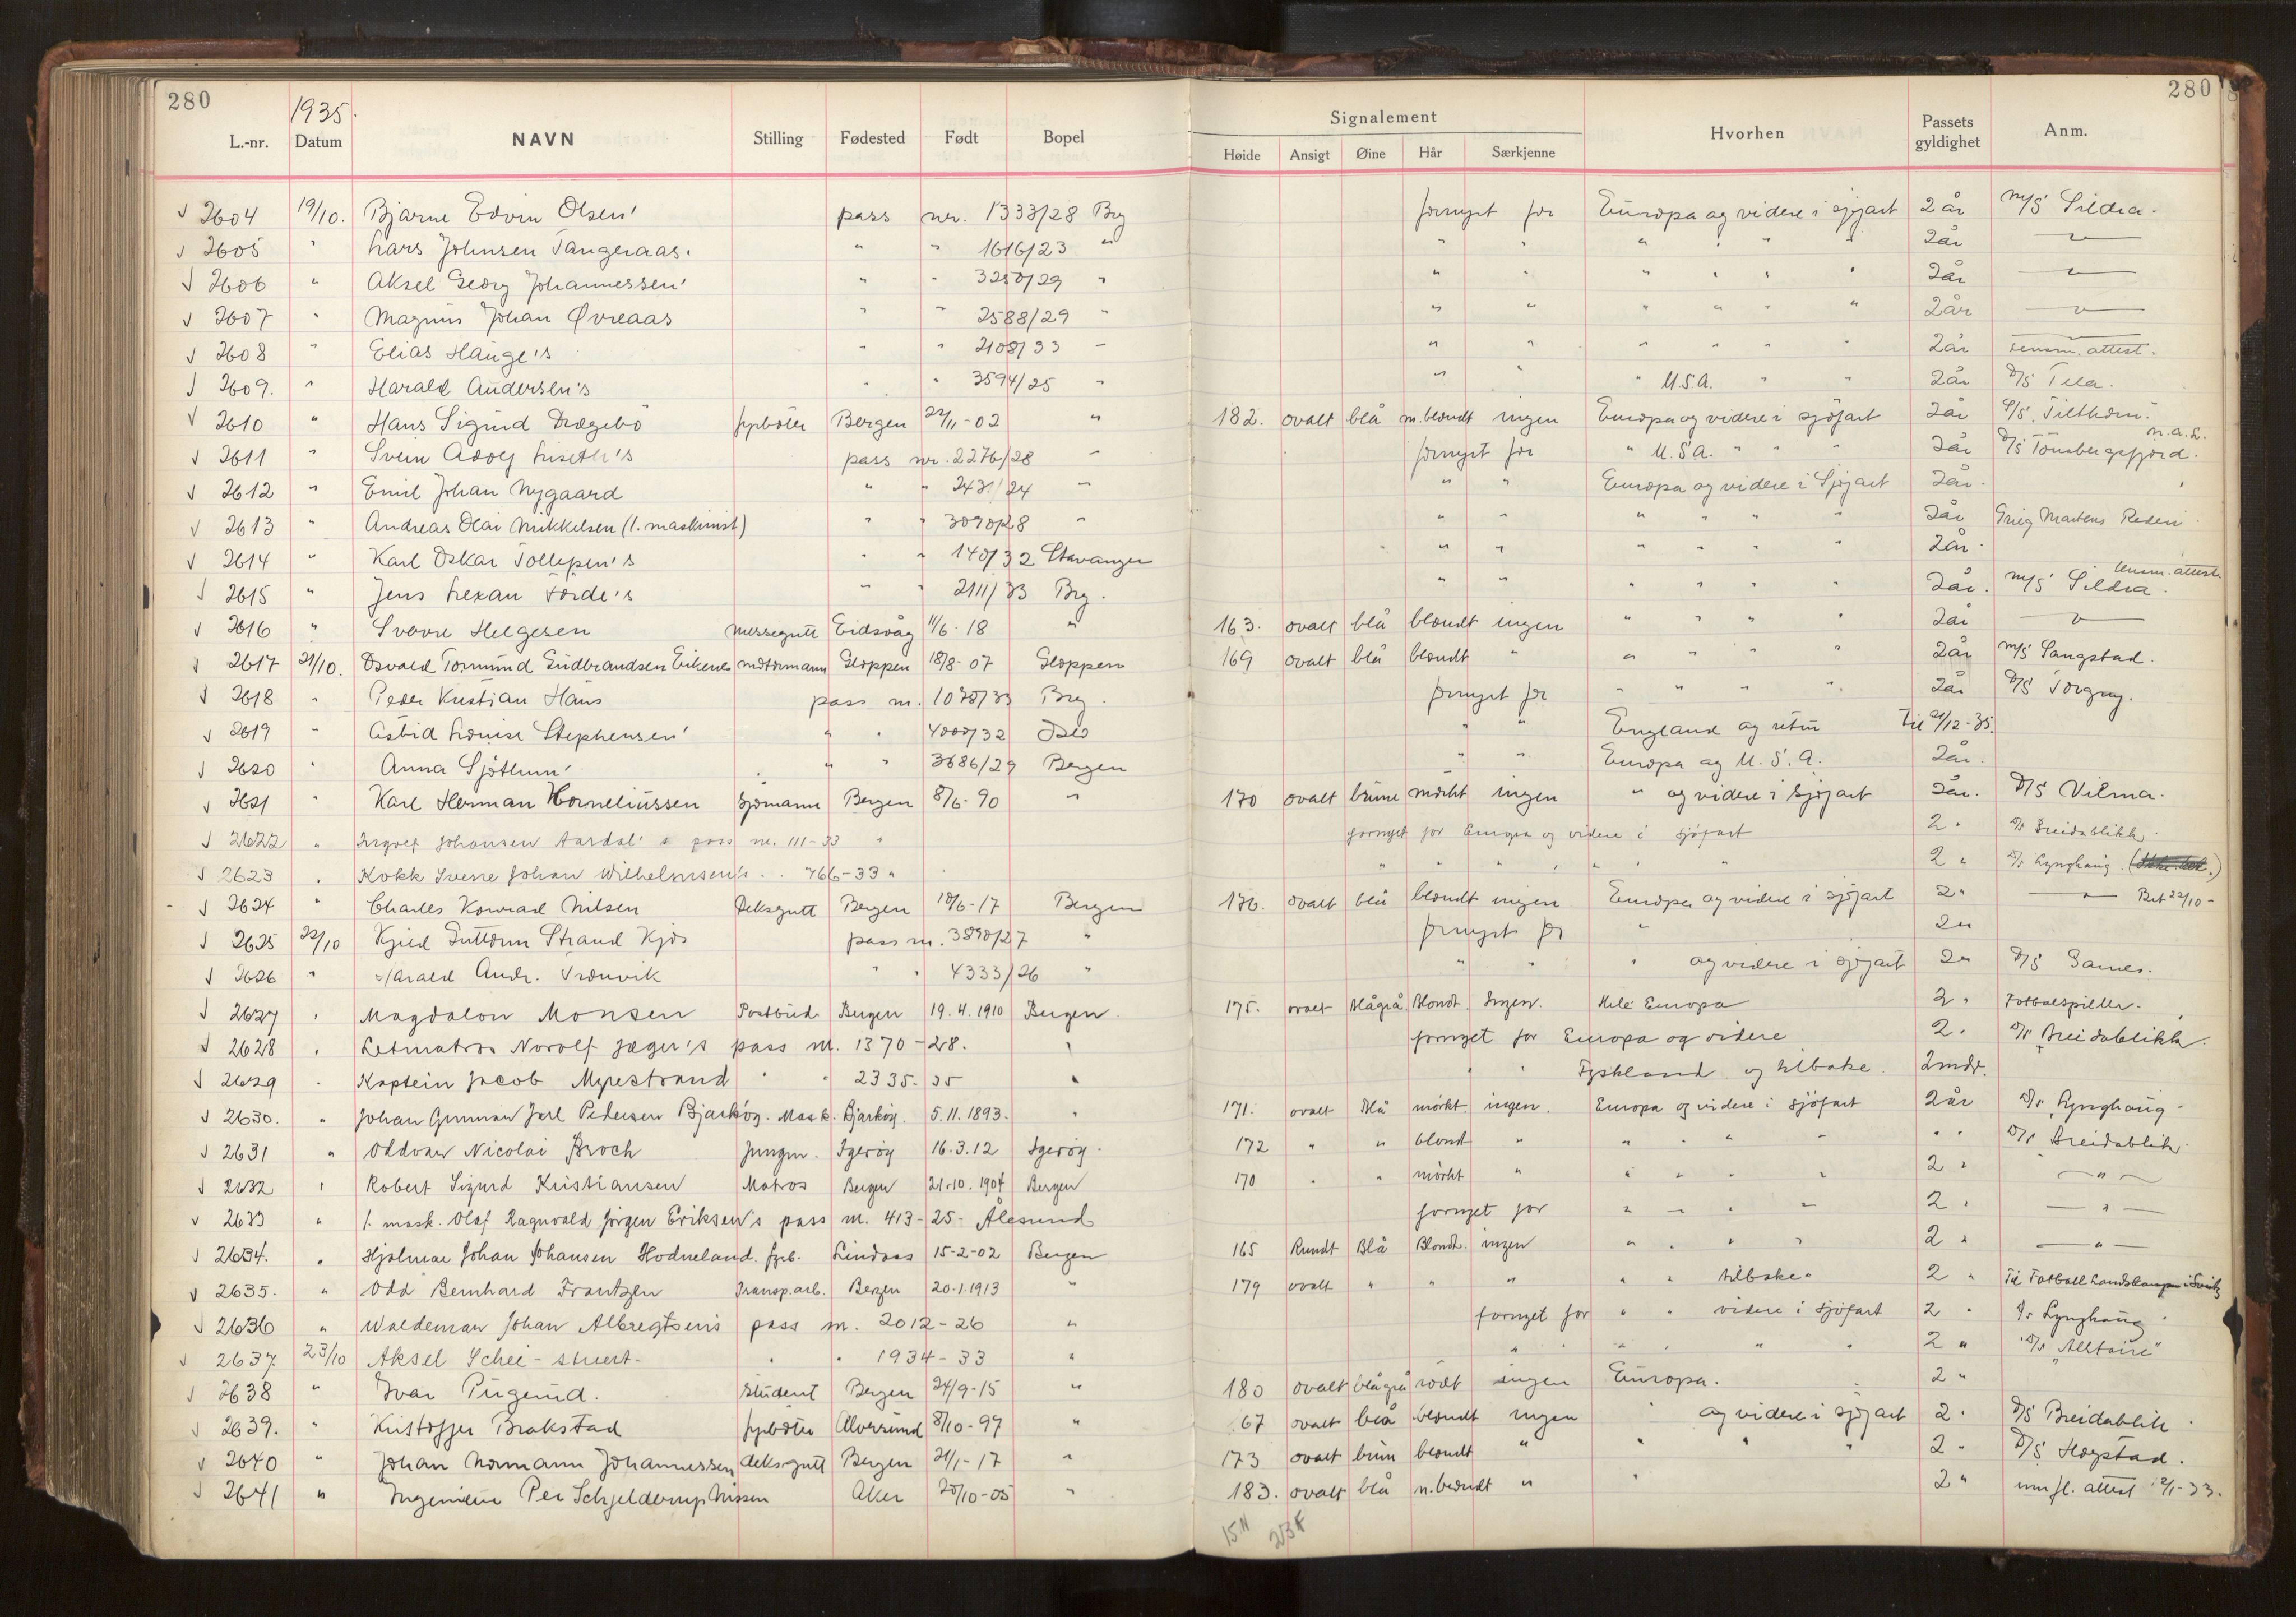 280 280
1935.
L.-nr. Datum NAVN Stilling Fødested Født Bopel Signalement Hvorhen Passets gyldighet Anm.
Høide Ansigt Øine Hår Særkjenne
2604 19/10. Bjarne Edvin Olsen' pass nr. 1333/28 Brg fornyet for Europa og videre i sjøfart 2 år M/S Sildra.
2605 " Lars Johnsen Tangeraas. " " 1616/23 " " " " " " " 2år
2606 " Aksel Georg Johannessen' " " 3250/29 " " " " " " " 2år
2607 " Magnus Johan Øvreaas " " 2588/29 " " " " " " " 2år
2608 " Elias Hauge's " " 2108/33 " " " " " " " 2år lensm. attest.
2609. " Harald Andersen's " " 3594/25 " " " " U.S.A. " " 2år D/S Tela.
2610 " Hans Sigurd Drægebö fyrböter Bergen 22/11-02 " 182. ovalt blå m.blondt ingen Europa og videre i sjöfart 2år S/S. Tilthorn.
2611 " Svein Adolf Liseth's pass nr. 2276/28 " fornyet for " U.S.A. " " " 2år D/S Tönsbergsfjord. n.a.l.
2612 " Emil Johan Nygaard " " 2431/24 " " " Europa og videre i Sjöfart 2år.
2613 " Andreas Olai Mikkelsen (1. maskinist) " " 3090/28 " " " " " " " 2år Grieg Martens Rederi
2614 " Karl Oskar Tollefsen's " " 140/32 Stavanger " " " " " " 2år.
2615 " " Förde's " " 2111/33 Brg. " " " " " " 2år. M/S Sildra. lensm. attest.
2616 " Sverre Helgesen messegutt Eidsvåg 11/6-18 " 163. ovalt blå blondt ingen " " " " 2år
2617 21/10. Osvald Tormund Gudbrandsen Eikenes motormann Gloppen 18/8-07 Gloppen 169 ovalt blå blondt " " " " " 2år M/S Sangstad.
2618 " Peder Kristian Haus pass nr. 1070/33 Brg. fornyet for " " " " 2år D/S Torgny.
2619 " Astrid Louise Stephensen' " " 4000/32 Oslo " " England og retur Til 21/12-35.
2620 " Anna Sjöthun' " " 3686/29 Bergen " " Europa og U.S.A. 2år.
2621 " Karl Herman Korneliussen sjömann Bergen 8/6-90 " 170 ovalt brune mörkt ingen " og videre i sjöfart 2år. D/S Vilma.
2622 " Ingolf Johansen Aardal's pass nr. 111-33 " fornyet for Europa og videre i sjöfart 2 " D/S Breidablikk.
2623 " Kokk Sverre Johan Wilhelmsen's " " 766-33 " " " " " " " 2 " D/S Lynghaug.
2624 " Charles Konrad Nilsen Deksgutt Bergen 18/6-17 Bergen 176. ovalt blå blondt ingen Europa og videre i sjöfart 2 " Bet 22/10-
2625 22/10 Kjell Guttorm Strand Kjös pass nr. 3890/27 " fornyet for " 2 "
2626 " Harald Andr. Trönvik " " 4333/26 " " " " og videre i sjöfart 2 " D/S Garnes.
2627 " Magdalon Monsen Postbud Bergen 19.4.1910 Bergen. 175. ovalt blågrå blondt. Ingen. Hele Europa 2 " Fotballspiller.
2628 " Letmatros Norolf Jæger's pass nr. 1370-28. " fornyet for Europa og videre 2 " D/S Breidablikk.
2629 " Kaptein Jacob Myrestrand " " 2335-35 " " " Tyskland og tilbake. 2mdr.
2630. " Johan Gunnar Jarl Pedersen Bjarköy. Mask. Bjarköy. 5.11.1893. " 171. ovalt blå mörkt ingen. Europa og videre i sjöfart 2år D/S Lynghaug
2631 " Oddvar Nicolai Broch Jungm. Sgeröy 16.3.12 Sgeröy. 172 " " blond " " " " " " " D/S Breidablik.
2632 " Robert Sigurd Kristiansen Matros Bergen 21.10.1907 Bergen 170 " " mörkt " " " " " 2 " — " —
2633 " 1. mask. Olaf Ragnvald Jörgen Eriksen's pass nr. 413-25- Ålesund fornyet for " " " " 2 " — " —
2634. " Hjalmar Johan Johansen Hodneland. fyrb. Lindaas 15-2-02 Bergen 165 Rundt Blå Blondt. ingen " " " " 2 " — " —
2635. " Odd Bernhard Frantzen Transp.arb. Bergen 20.1.1913 " 179 ovalt " " " " " tilbake " 2 " Til Fotball Landskamp i Sveits
2636 " Waldemar Johan Albregtsen's pass nr. 2012-26 " fornyet for " " videre i sjöfart 2 " D/S Lynghaug
2637 23/10 Aksel Schei - stuert- " " 1934-33 " " " " " " 2 " D/S "Alltair"
2638 " Ivar Pugerud. student Bergen 24/9-15 " 180 ovalt blågrå rödt ingen Europa. 2 "
2639. " Kristoffer Brakstad fyrböter Alversund 8/10-97 " 167 ovalt blå blondt ingen " og videre i sjöfart 2 " D/S Breidablik.
2640 " Johan Normann Johannessen deksgutt Bergen 21/1-17 " 173 ovalt brun blondt " " " " 2 " D/S Hogstad.
2641 " Ingeniör Per Schjelderup Nissen Aker 20/10-05 " 183. ovalt blå m.blondt " " 2 " attest
15 11